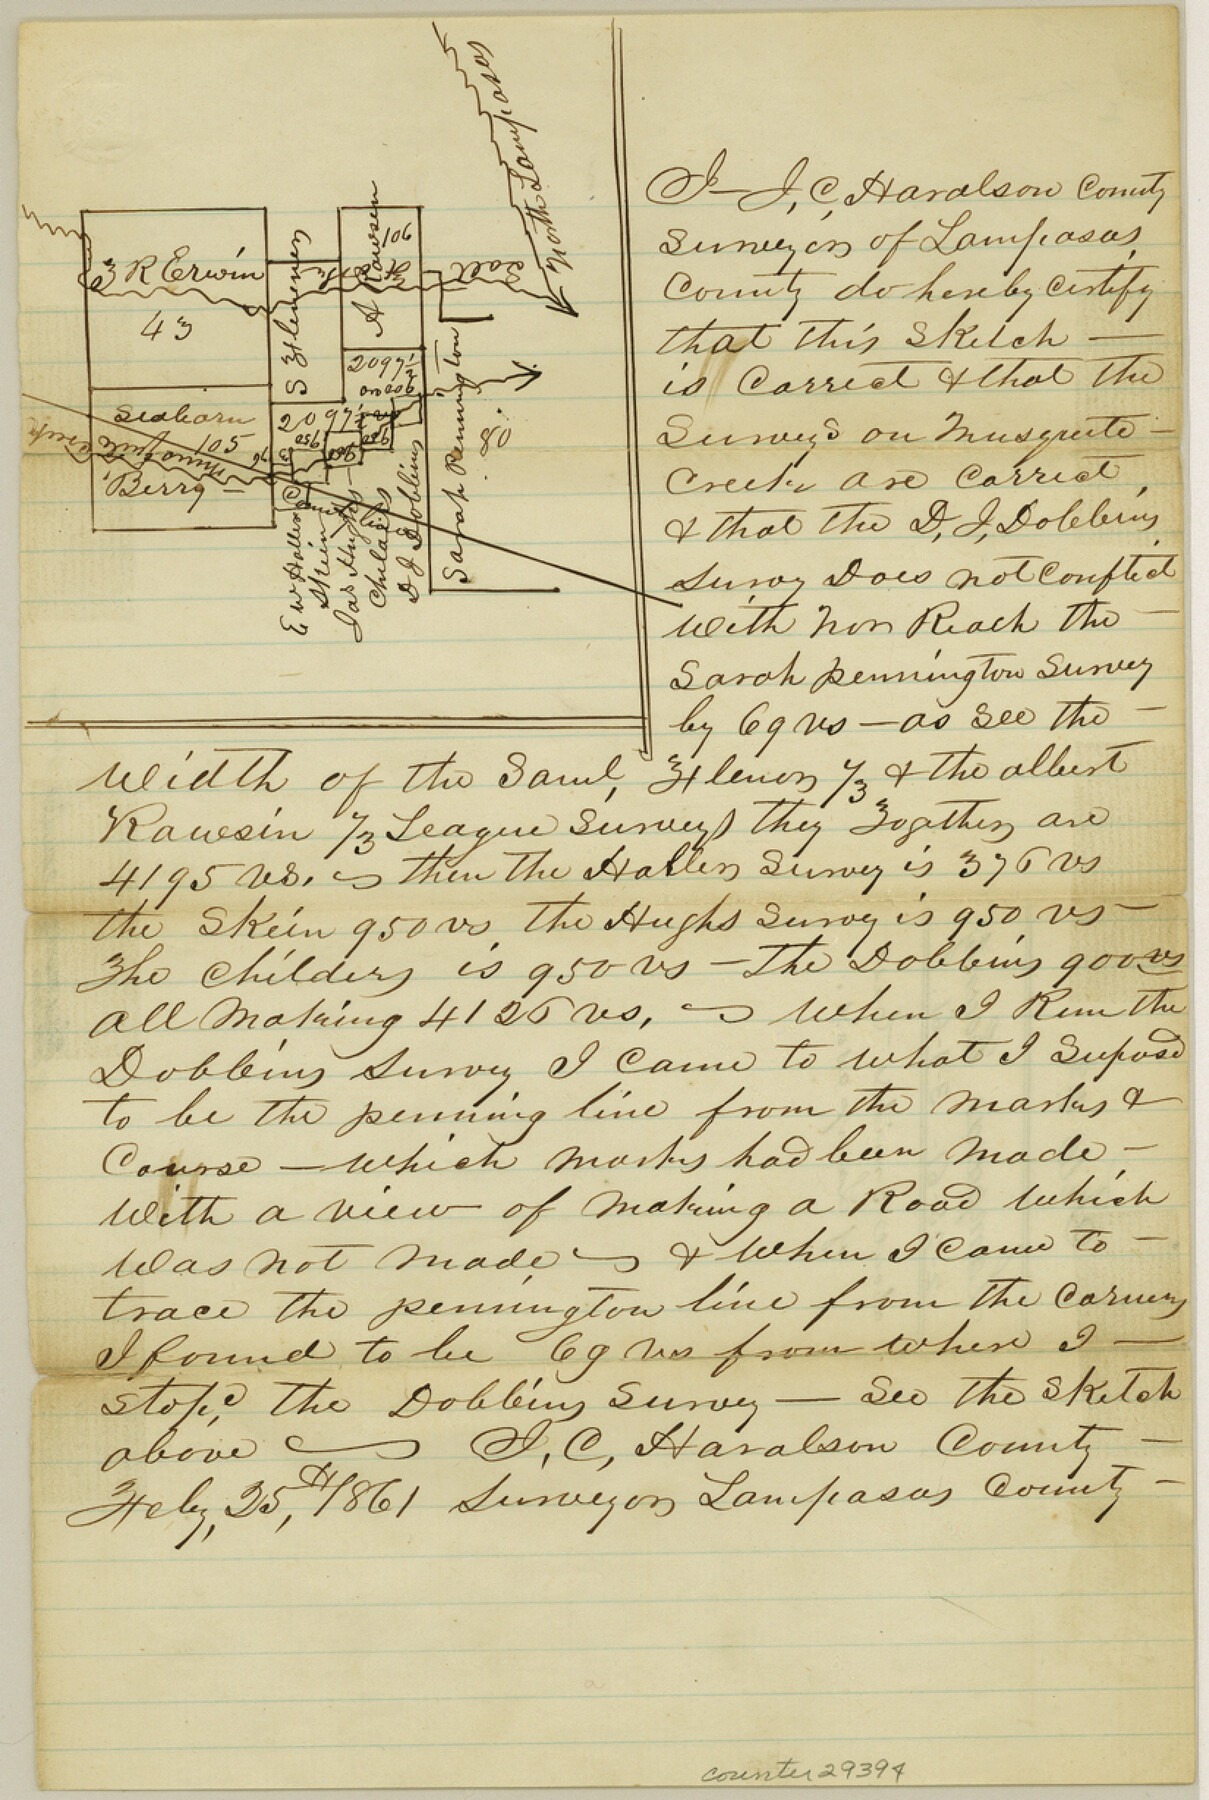 North Lampasas
T R Erwin
43
S Flemens
A Rawsin
106
Salt
2097 1/2
900 vs
Seaborn
105
Berry
Creek
2097 1/2 vs
950
950
950
Sarah Pennington
80
E W Haller
Skein
Jas Hughs
Childers
D J Dobbins
County line
I J, C, Haralson County
Surveyor of Lampasas
County do hereby Certify
that this Sketch —
is Correct & that the
Surveys on Musqueto —
Creek are Correct,
& that the D, J, Dobbins
Survey Does not Conflict
With nor Reach the —
Sarah pennington Survey
by 69 vs — as See the —
Width of the Saml, Flemens 1/3 & the albert
Rawsin 1/3 League Surveys they Togather are
4195 vs. then the Haller Survey is 376 vs
the Skein 950 vs the Hughs Survey is 950 vs —
The Childers is 950 vs — The Dobbins 900 vs
all Making 4126 vs, When I Run the
Dobbins Survey I Came to what I Suposd
to be the penning line from the Marks &
Course — which Marks had been Made —
With a view of Making a Road which
was not Made, & When I Came to —
trace the pennington line from the Corners
I found to be 69 vs from where I —
stopd, the Dobbins Survey — See the Sketch
above J, C, Haralson County —
Feby, 25,th/1861 Surveyor Lampasas County —
counter 29394